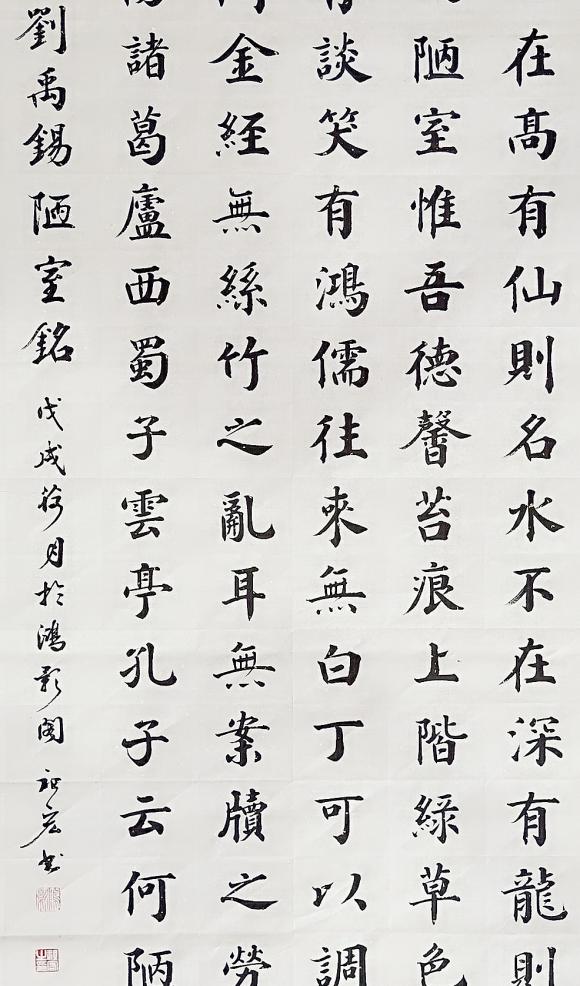 在髙有仙則名水不在深有龍則
陋室惟吾德馨苔痕上階綠草色
談笑有鴻儒往來無白丁可以調
金經無絲竹之亂耳無案牘之勞
諸葛廬西蜀子雲亭孔子云何陋
劉禹錫陋室銘 戊戌荷月於鴻影閣 书